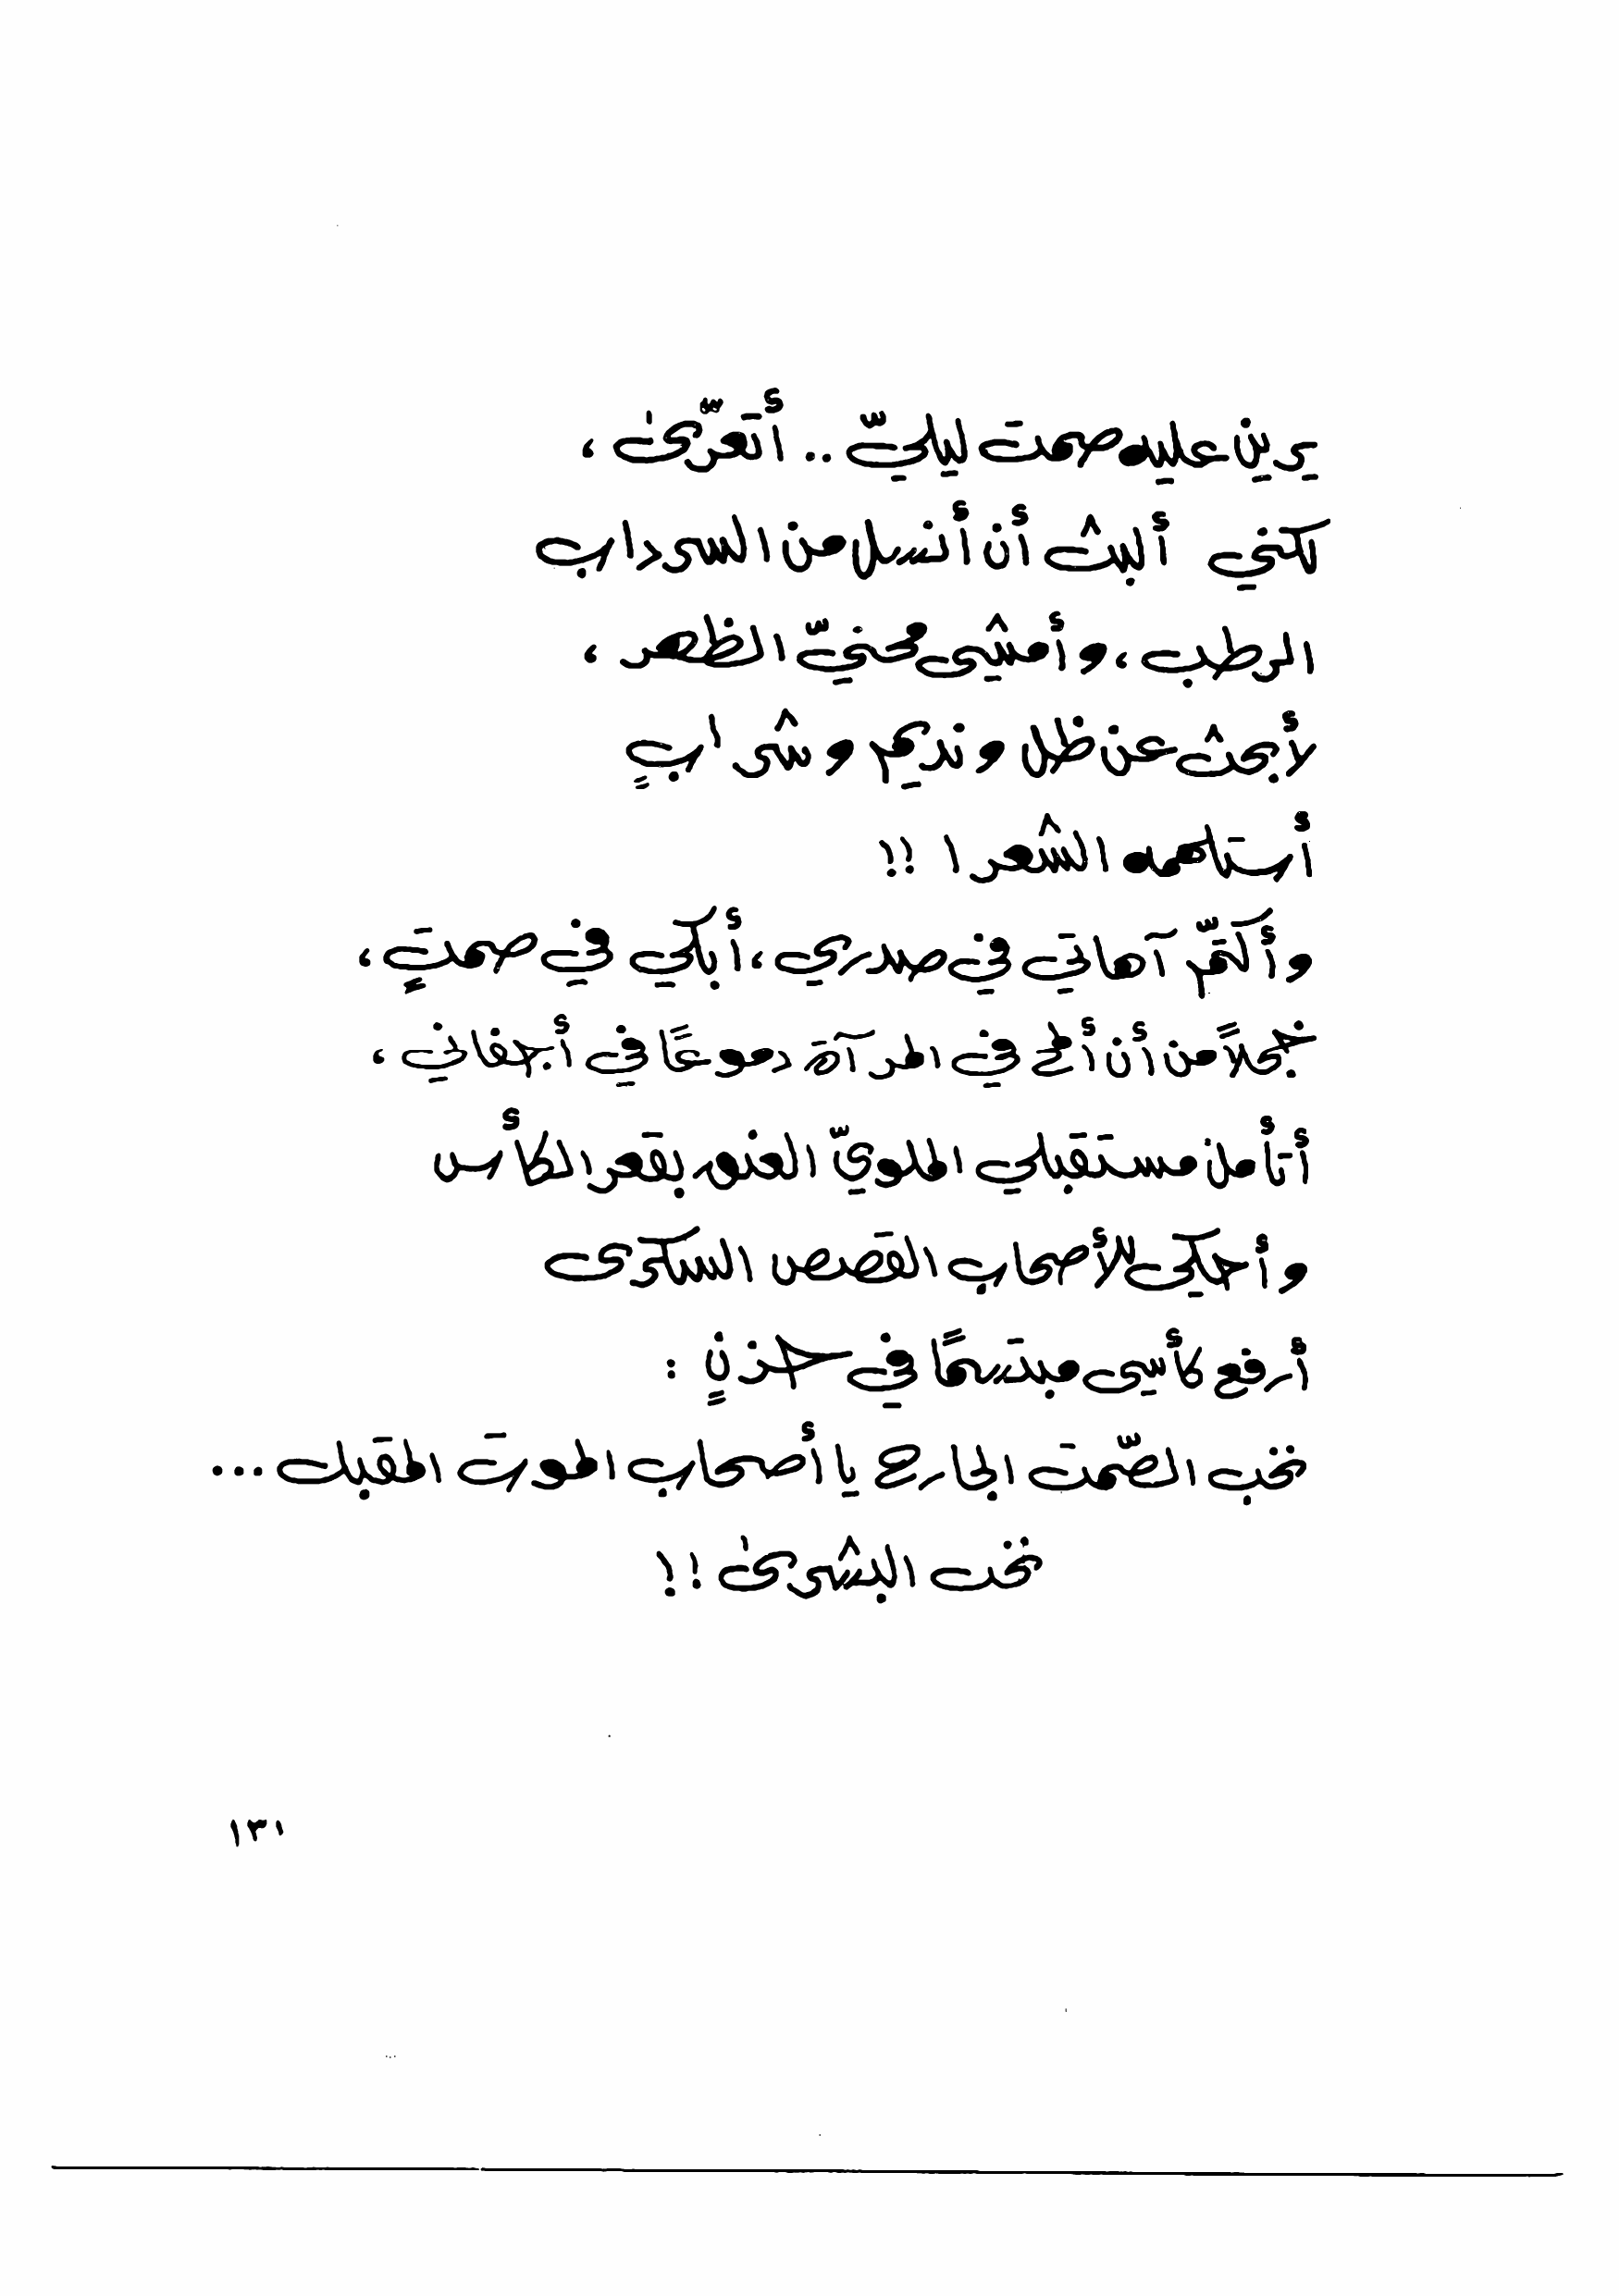 يرين عليه صمت ليليّ .. أتعرّىٰ ،
لكنني ألبث أن أنسل من السرداب
الرطب ، وأمشي محنيّ الظهر ،
لأبحث عن ظل ونديم وشرابٍ
أستلهمه الشعرا !!
وأكتّم آهاتي في صدري ، أبكي في صمتٍ ،
خجلاً من أن ألمح في المرآة دموعًا في أجفاني ،
أتأمل مستقبلي الملويّ العنق بقعر الكأس
وأحكي للأصحاب القصص السكرى
أرفع كأسي مبتسمًا في حزنٍ :
نخب الصّمت الجارح يا أصحاب الموت المقبل ...
نخب البشرىٰ !!
١٣١